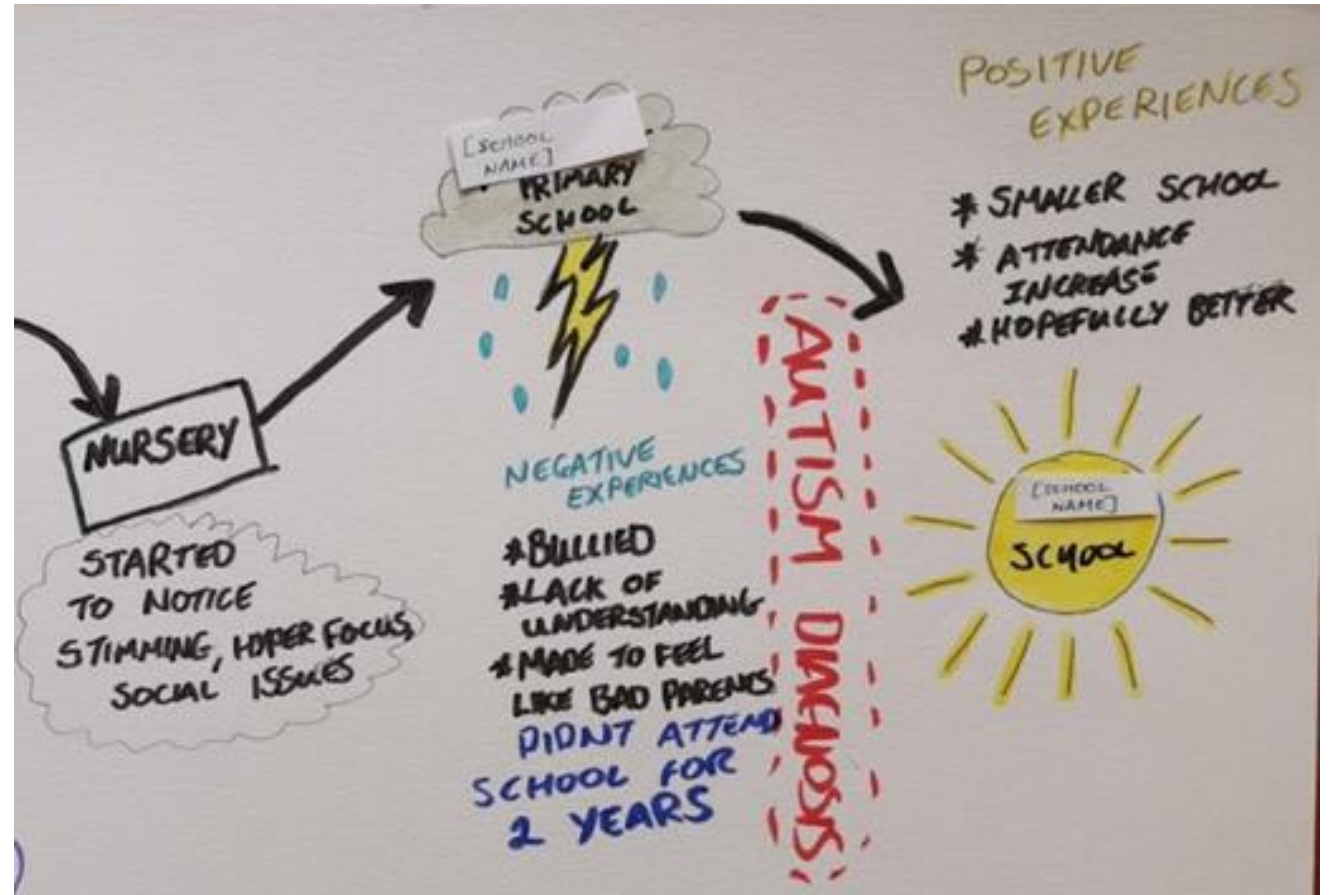 NURSERY
STARTED
TO NOTICE
STIMMING, HYPER FOCUS,
SOCIAL ISSUES
[SCHOOL
NAME]
PRIMARY
SCHOOL
NEGATIVE
EXPERIENCES
*BULLIED
*LACK OF
UNDERSTANDING
*MADE TO FEEL
LIKE BAD PARENTS
DIDNT ATTEND
SCHOOL FOR
2 YEARS
AUTISM DIAGNOSIS
POSITIVE
EXPERIENCES
* SMALLER SCHOOL
* ATTENDANCE
INCREASE
* HOPEFULLY BETTER
[SCHOOL
NAME]
SCHOOL